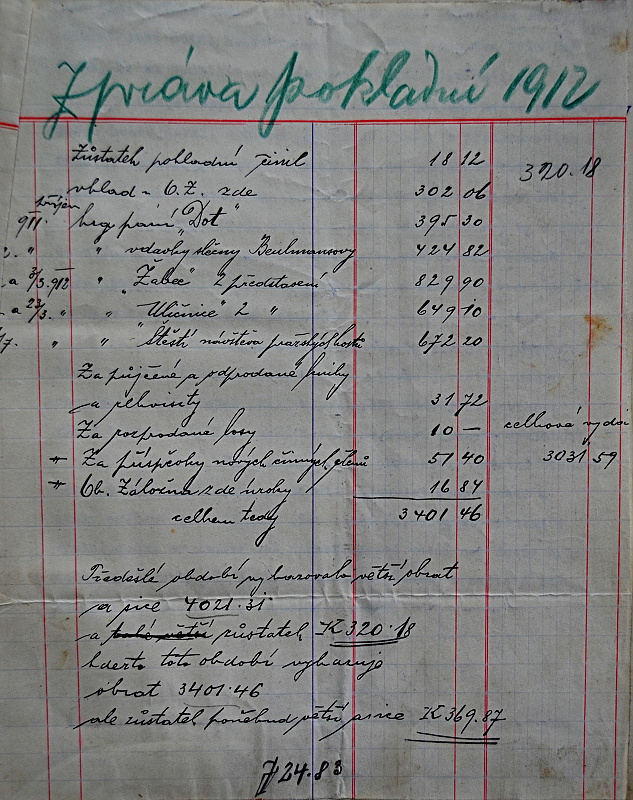 Zpráva pokladní 1912
Zůstatek pokladní činil 18 12 320.18
vklad u O.Z. zde 302 06
příjem
9/II. hry paní "Dot" 395 30
" " vdavky slečny Beulmansovy 424 82
a 3/3. 912 " "Žabec" 2 představení 829 90
a 23/3. " " "Uličnice" 2 " 649 10
" " "Štěstí návštěva pražských hostů 672 20
Za půjčené a odprodané knihy
a rekvisity 31 72
Za rozprodané losy 10 — celková vydání
+ Za příspěvky nových činných členů 51 40 3031 59
+ Ob. Záložna zde úroky 16 84
celkem tedy 3401 46
Předešlé období vykazovalo větší obrat
a sice 4021.31
a také větší zůstatek K 320.18
kdežto toto období vykazuje
obrat 3401.46
ale zůstatek poněkud větší a sice K 369.87
724.83